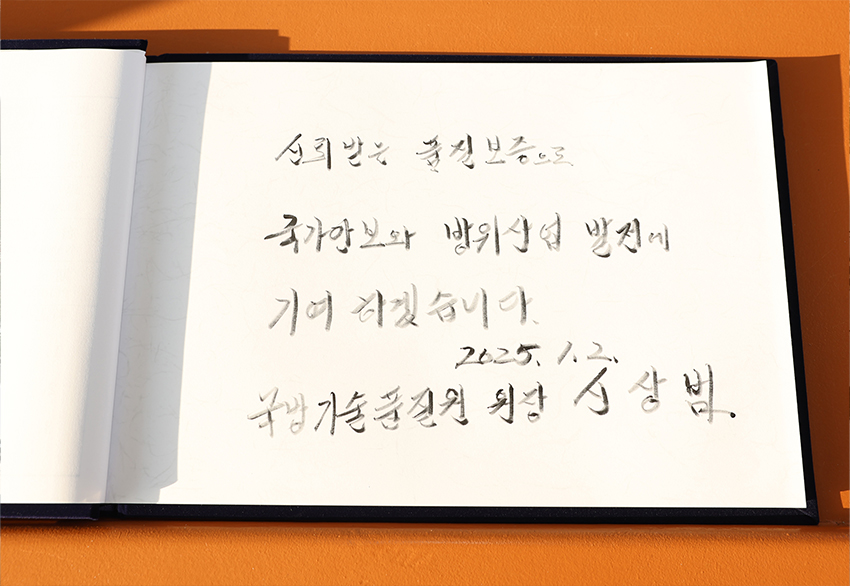 신뢰받는 품질보증으로
국가안보와 방위산업 발전에
기여 하겠습니다.
2025. 1. 2.
국방기술품질원 원장 신상범.